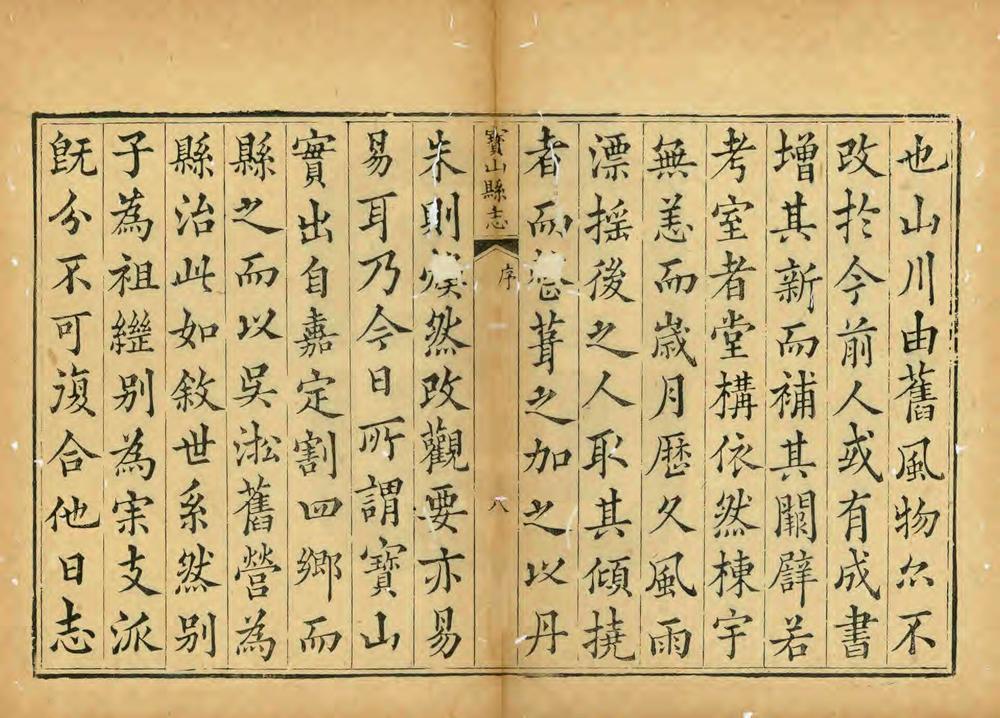 也山川由舊風物亦不
改於今前人或有成書
增其新而補其闕辟若
考室者堂構依然棟宇
無恙而歲月歷久風雨
漂搖後之人取其傾撓
者而葺之加之以丹
寶山縣志 序 八
朱則煥然改觀要亦易
易耳乃今日所謂寶山
實出自嘉定割四鄉而
縣之而以吳淞舊營為
縣治此如敘世系然別
子為祖繼別為宗支派
旣分不可復合他日志